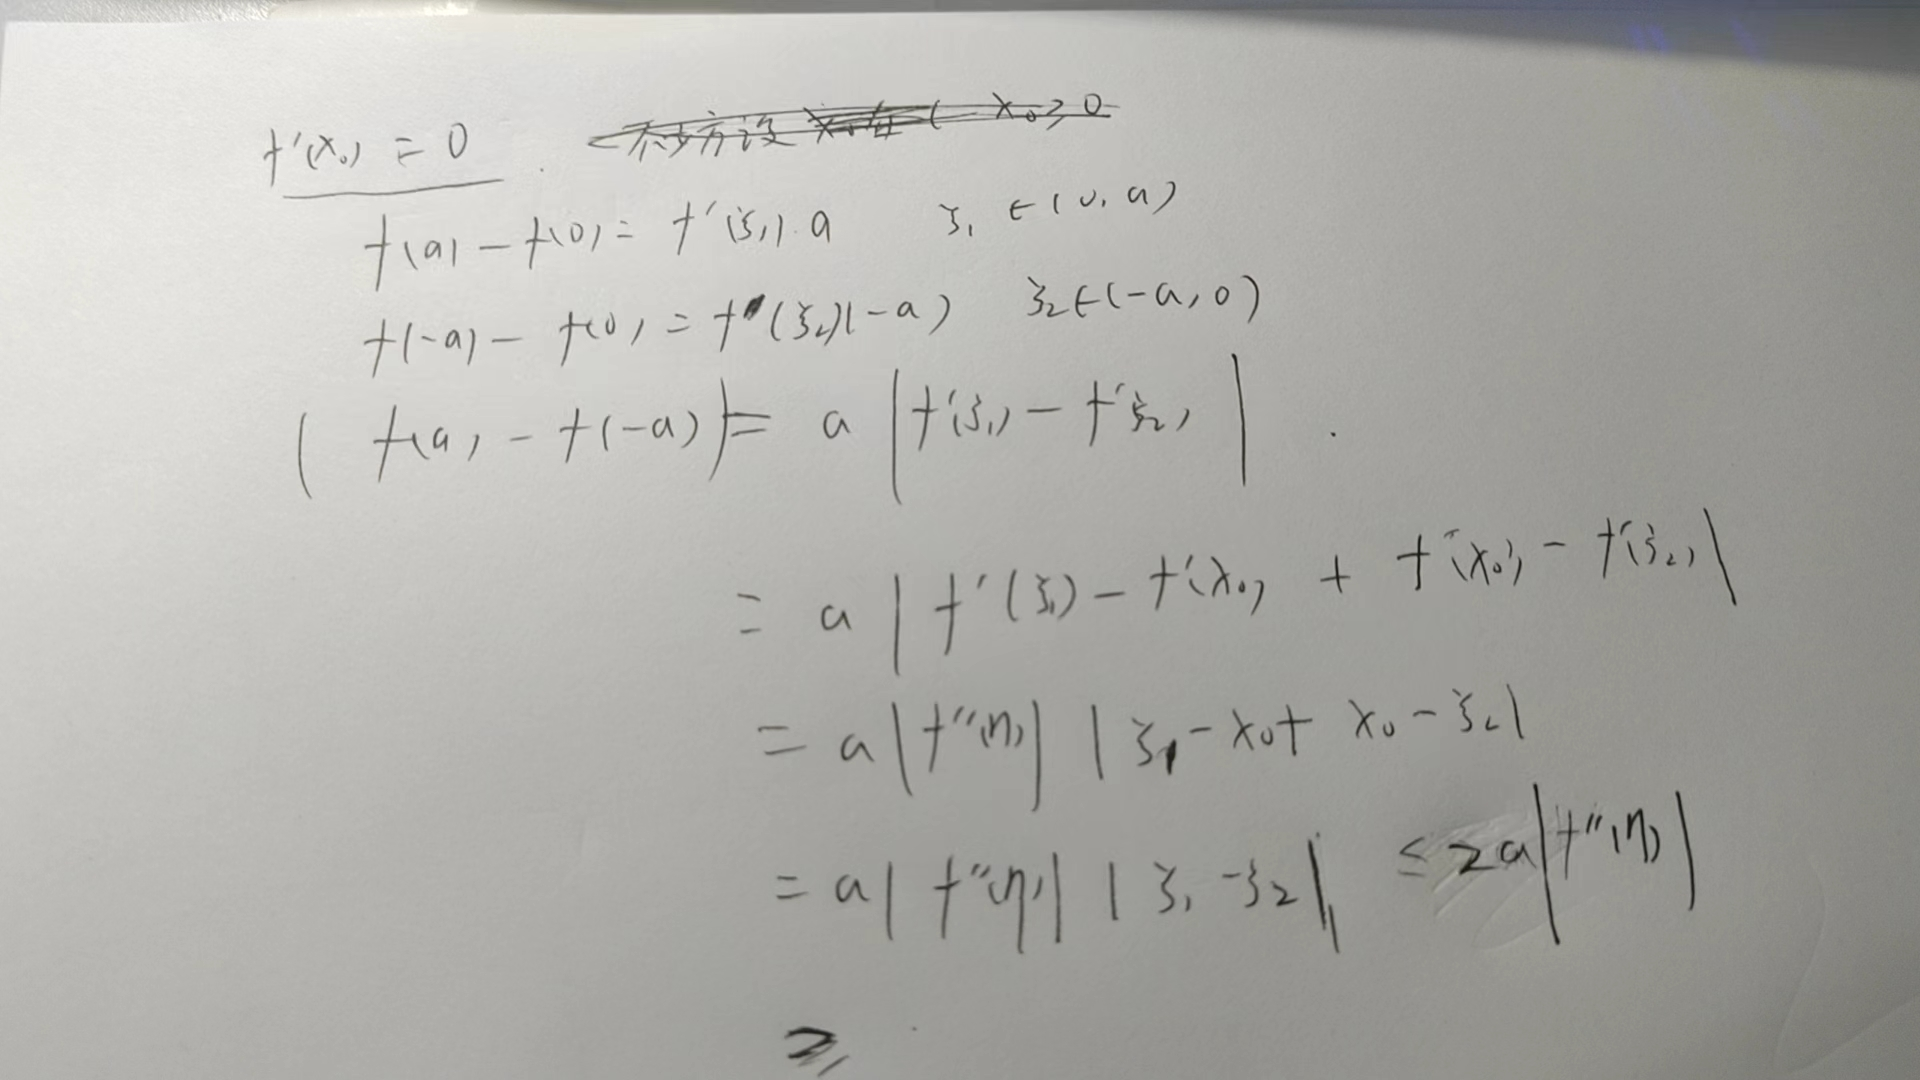 f'(x₀) = 0 . 不妨设 x₀≥0
f(a) - f(0) = f'(ξ₁)·a ξ₁ ∈ (0, a)
f(-a) - f(0) = f'(ξ₂)(-a) ξ₂ ∈ (-a, 0)
| f(a) - f(-a) | = a | f'(ξ₁) - f'(ξ₂) | .
= a | f'(ξ₁) - f'(x₀) + f'(x₀) - f'(ξ₂) |
= a | f''(η) | | ξ₁ - x₀ + x₀ - ξ₂ |
= a | f''(η) | | ξ₁ - ξ₂ | ≤ 2a | f''(η) |
≥